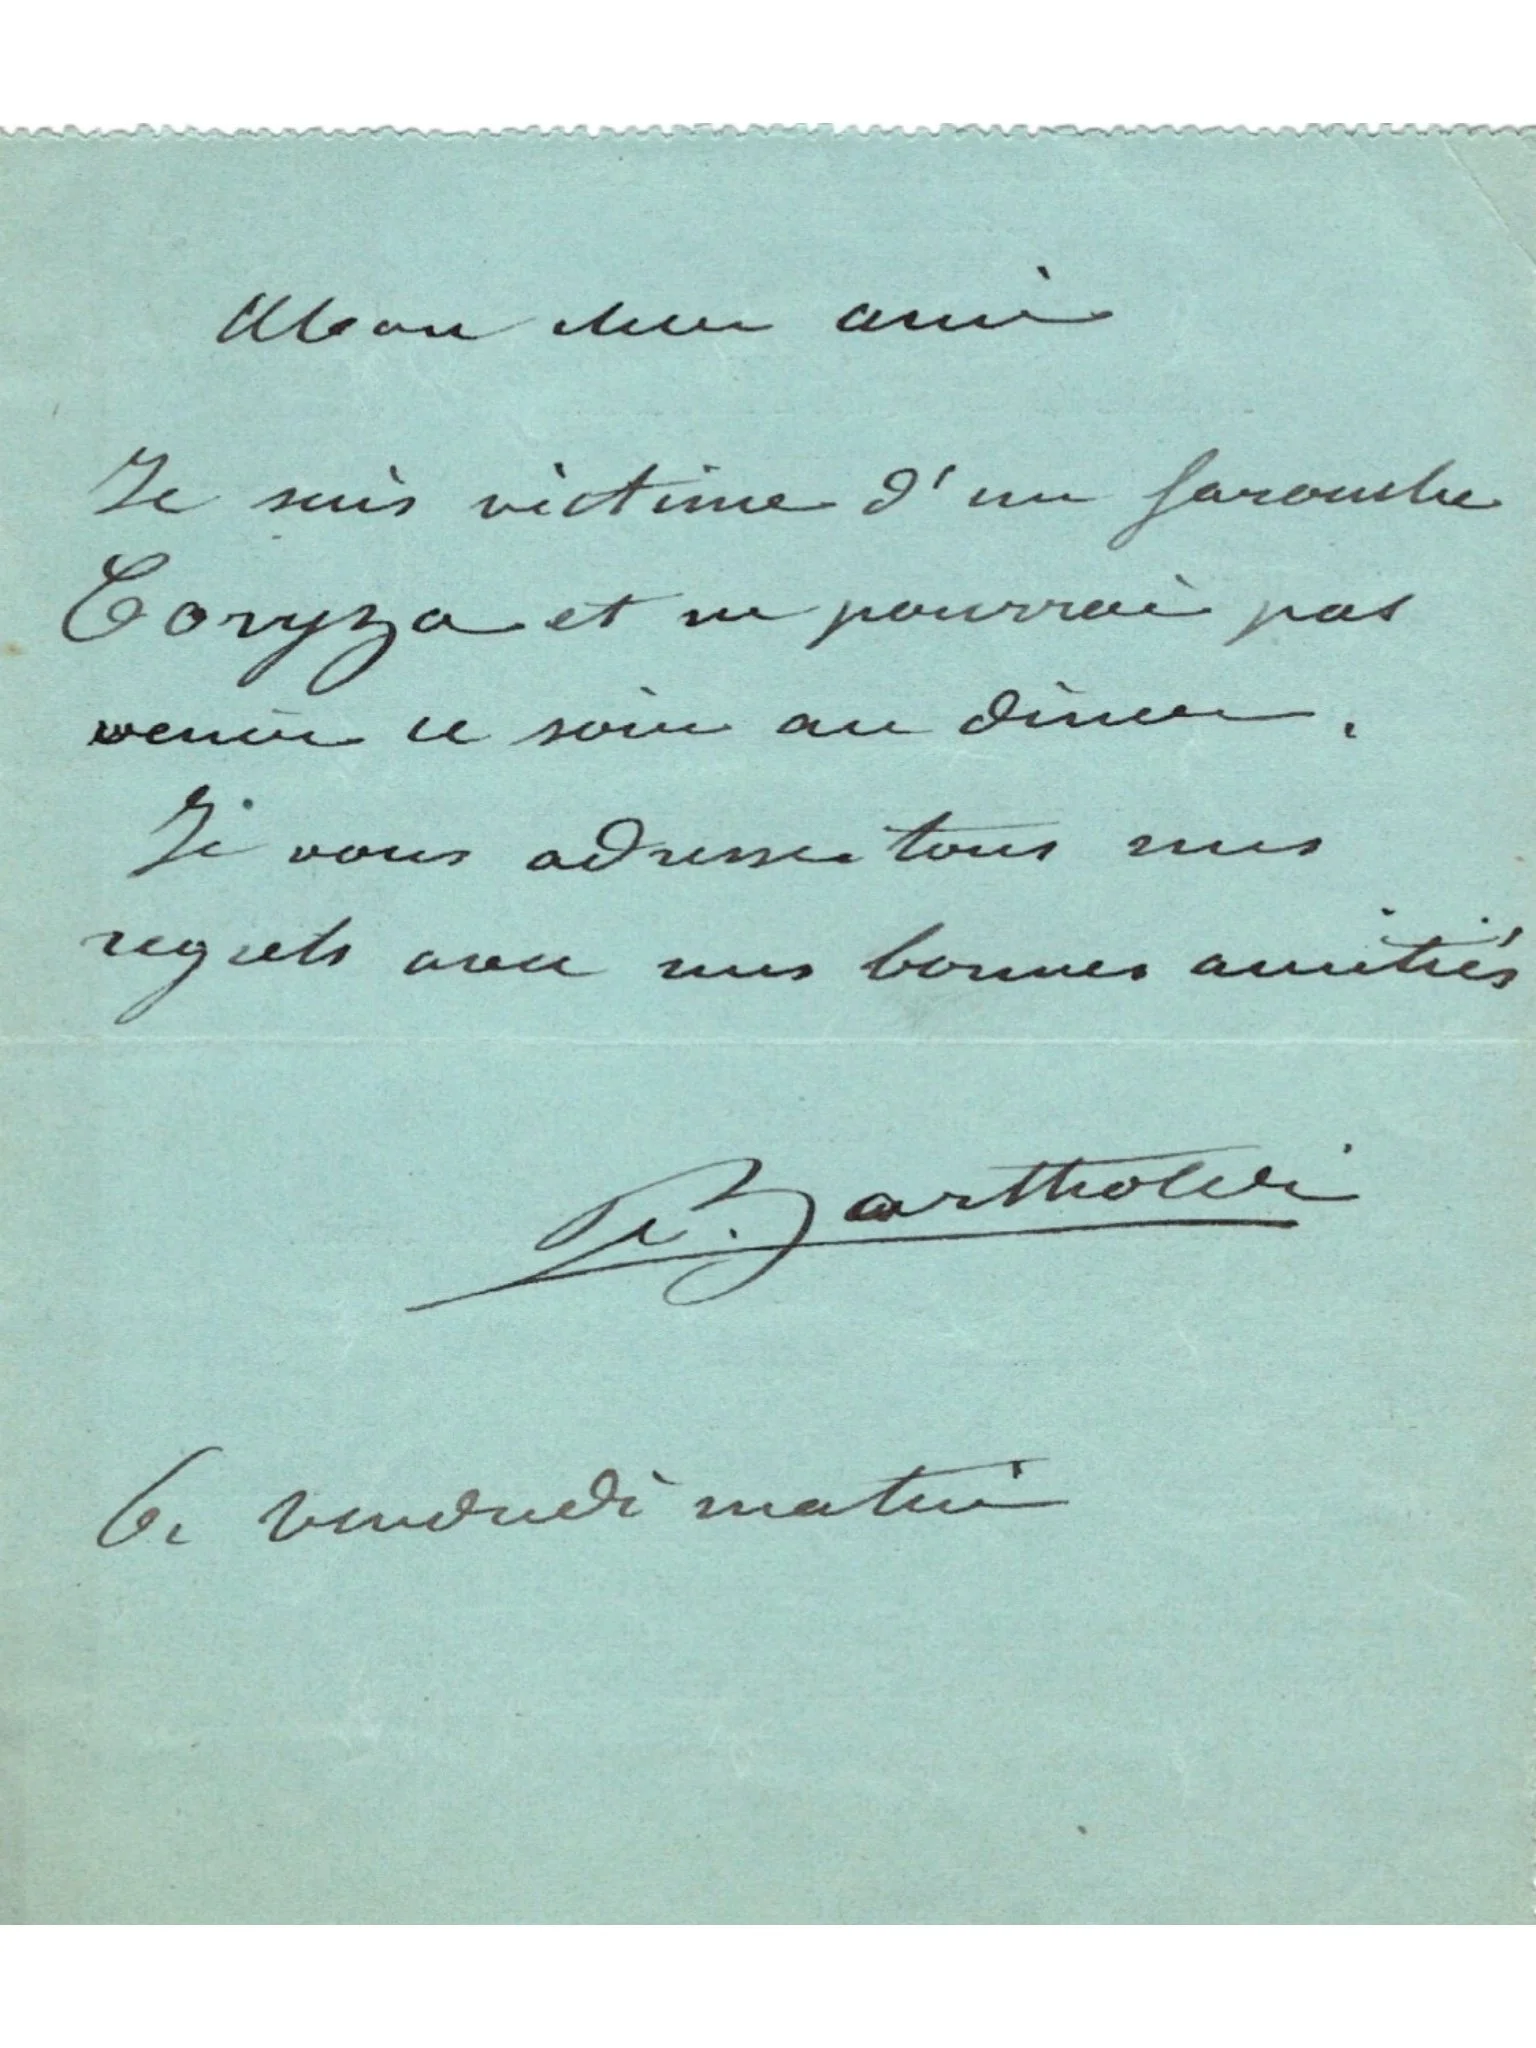 Mon cher ami
Je suis victime d'un farouche
Coryza et ne pourrai pas
venir ce soir au dîner.
Je vous adresse tous mes
regrets avec mes bonnes amitiés
Bartholdi
Ce vendredi matin